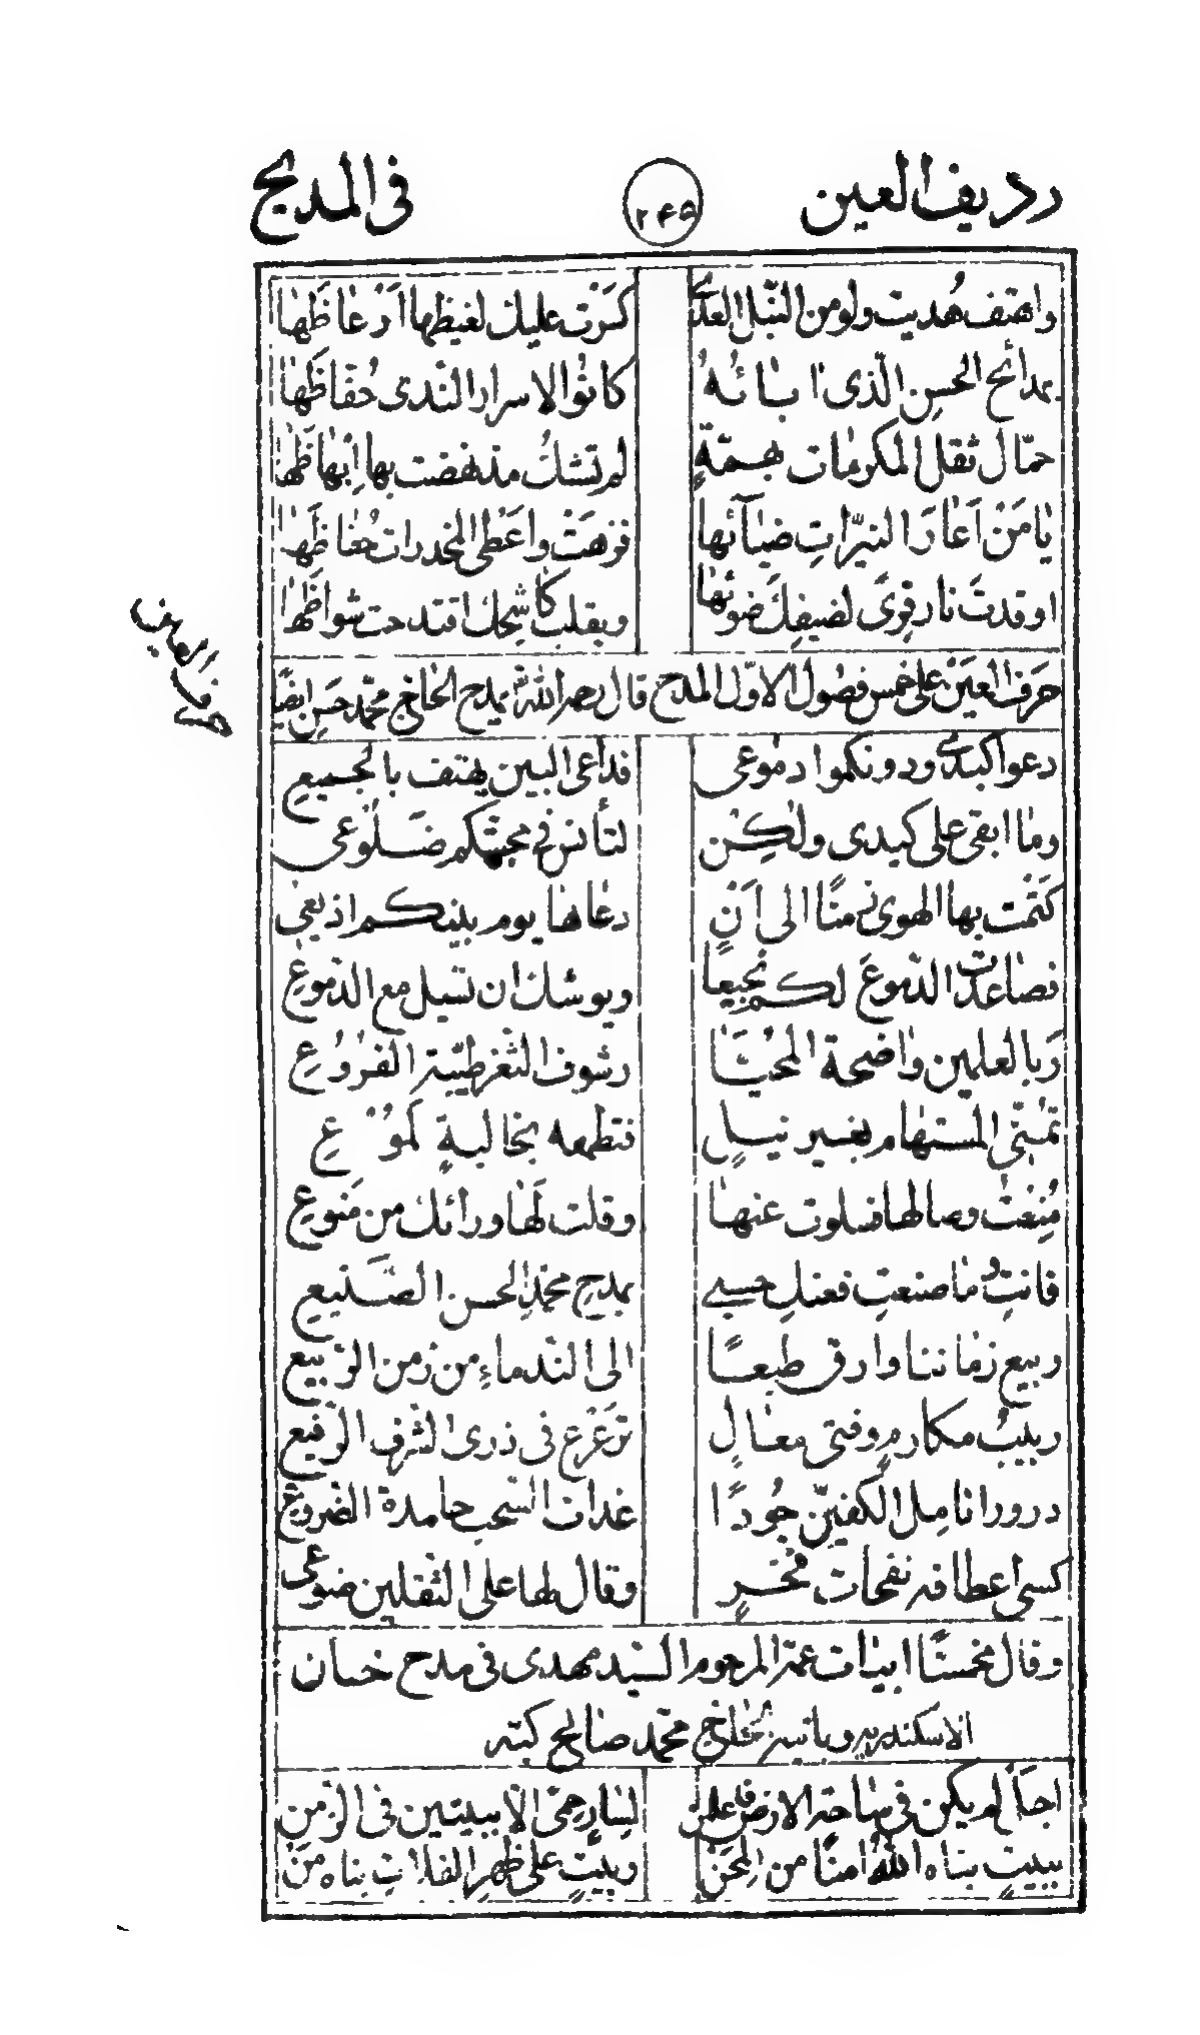 رديف العين ٢٤٥ في المديح
واهتف هُديت ولو من النبل العدى كرّت عليك لغيظها اَرعاظَها
بمدائح الحسن الّذي اٰبائهُ كانوا الاسرار الندى حُفّاظَها
حمّال ثقل المكرمات بهمّةٍ لم تشكُ مذ نهضت بها اِبهاظَها
يا مَنْ اَعارَ النيّراتِ ضيآئها فزهَتْ واعْطى المخدرات حُفاظَها
اوقدتَ نار قِرىً لضيفِكَ ضوئها وبقلب كاشحك اقتدحت شواظَها
حرف العَيْن على خمس فصُول الاوّل المدح قال رحمه الله يمدح الحاج محمّد حسن ايضًا
حرف العين
دعوا كبدى ودونكموا دموعى فداعى البين يهتف بالجميعِ
وما ابقى على كبدى ولٰكِن لتأنس في محبتكم ضلوعى
كَتمْت بها الهوى زمنًا الى اَنْ دعاها يوم بينكم اذيعى
فصاعدت الدّموعَ لكم نجيعا ويوشك ان تسيل مع الدّموعِ
رَبا العلمين واضحة المحيّا رشوف الثغر طيّبة الفروُعِ
تمُنّى المستهام بغير نيلٍ فتطمعه بخالبةٍ لموُعِ
مُنِعْتَ وصالها فسلوت عنها وقلت لَها ورائك من مَنوعِ
فانتِ وما صنعتِ فعنكِ حسبى بمدح محمّدِ الحسن الصّنيعِ
ربيع زماننا وارق طبعًا الى الندماءِ من زمن الرّبيع
ربيبُ مكارمٍ وفتى معالٍ ترَعْرَع في ذرى الشرف الرّفيع
درور انامِل الكفينّ جُودًا غداة السّحب جامدة الضّروعِ
كسى اعطافه نفحات فخرٍ وقال لها على الثقلين ضوعى
وقال مخمسًا ابيات عمّه المرحوم السيّد مهدى في مدح خان
الاسكندريه وبانيه الحاج محمّد صالح كبّه
اجَل لم يكن في ساحة الارض فاعلمن لِسارٍ حِمىً الا ببيتين في الزّمنِ
ببيتٍ بناه اللهُ امنًا من المِحَنْ وبيتٍ على ظهرِ الفلاةِ بناه مَنْ